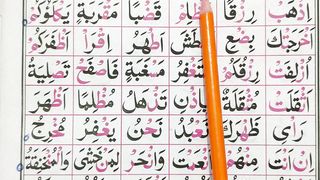 اِذْهَبْ رِزْقًا قَضْبًا مَقْرَبَةٍ
اَخْرَجَتْكَ بِضْعِ اَظْهَرُ اِقْرَاْ اَظْفَرَكُمْ
اُزْلِفَتْ رِزْقُكُمْ مَسْغَبَةٍ فَاصْفَحْ تَصْلِيَةُ
اَثْقَلَتْ مُثْقَلَةٌ تَذْهَلُ مُظْلِمًا اَظْهَرَ
رَاْىَ ظَهْرَكَ نَعْبُدُ نَحْنُ يَغْفِرُ مُخْرِجٌ
اِنْ اَنْتَ مِنْهُمْ اَنْعَمْتَ وَانْحَرْ لِمَنْ خَشِىَ وَالْمُنْخَنِقَةُ